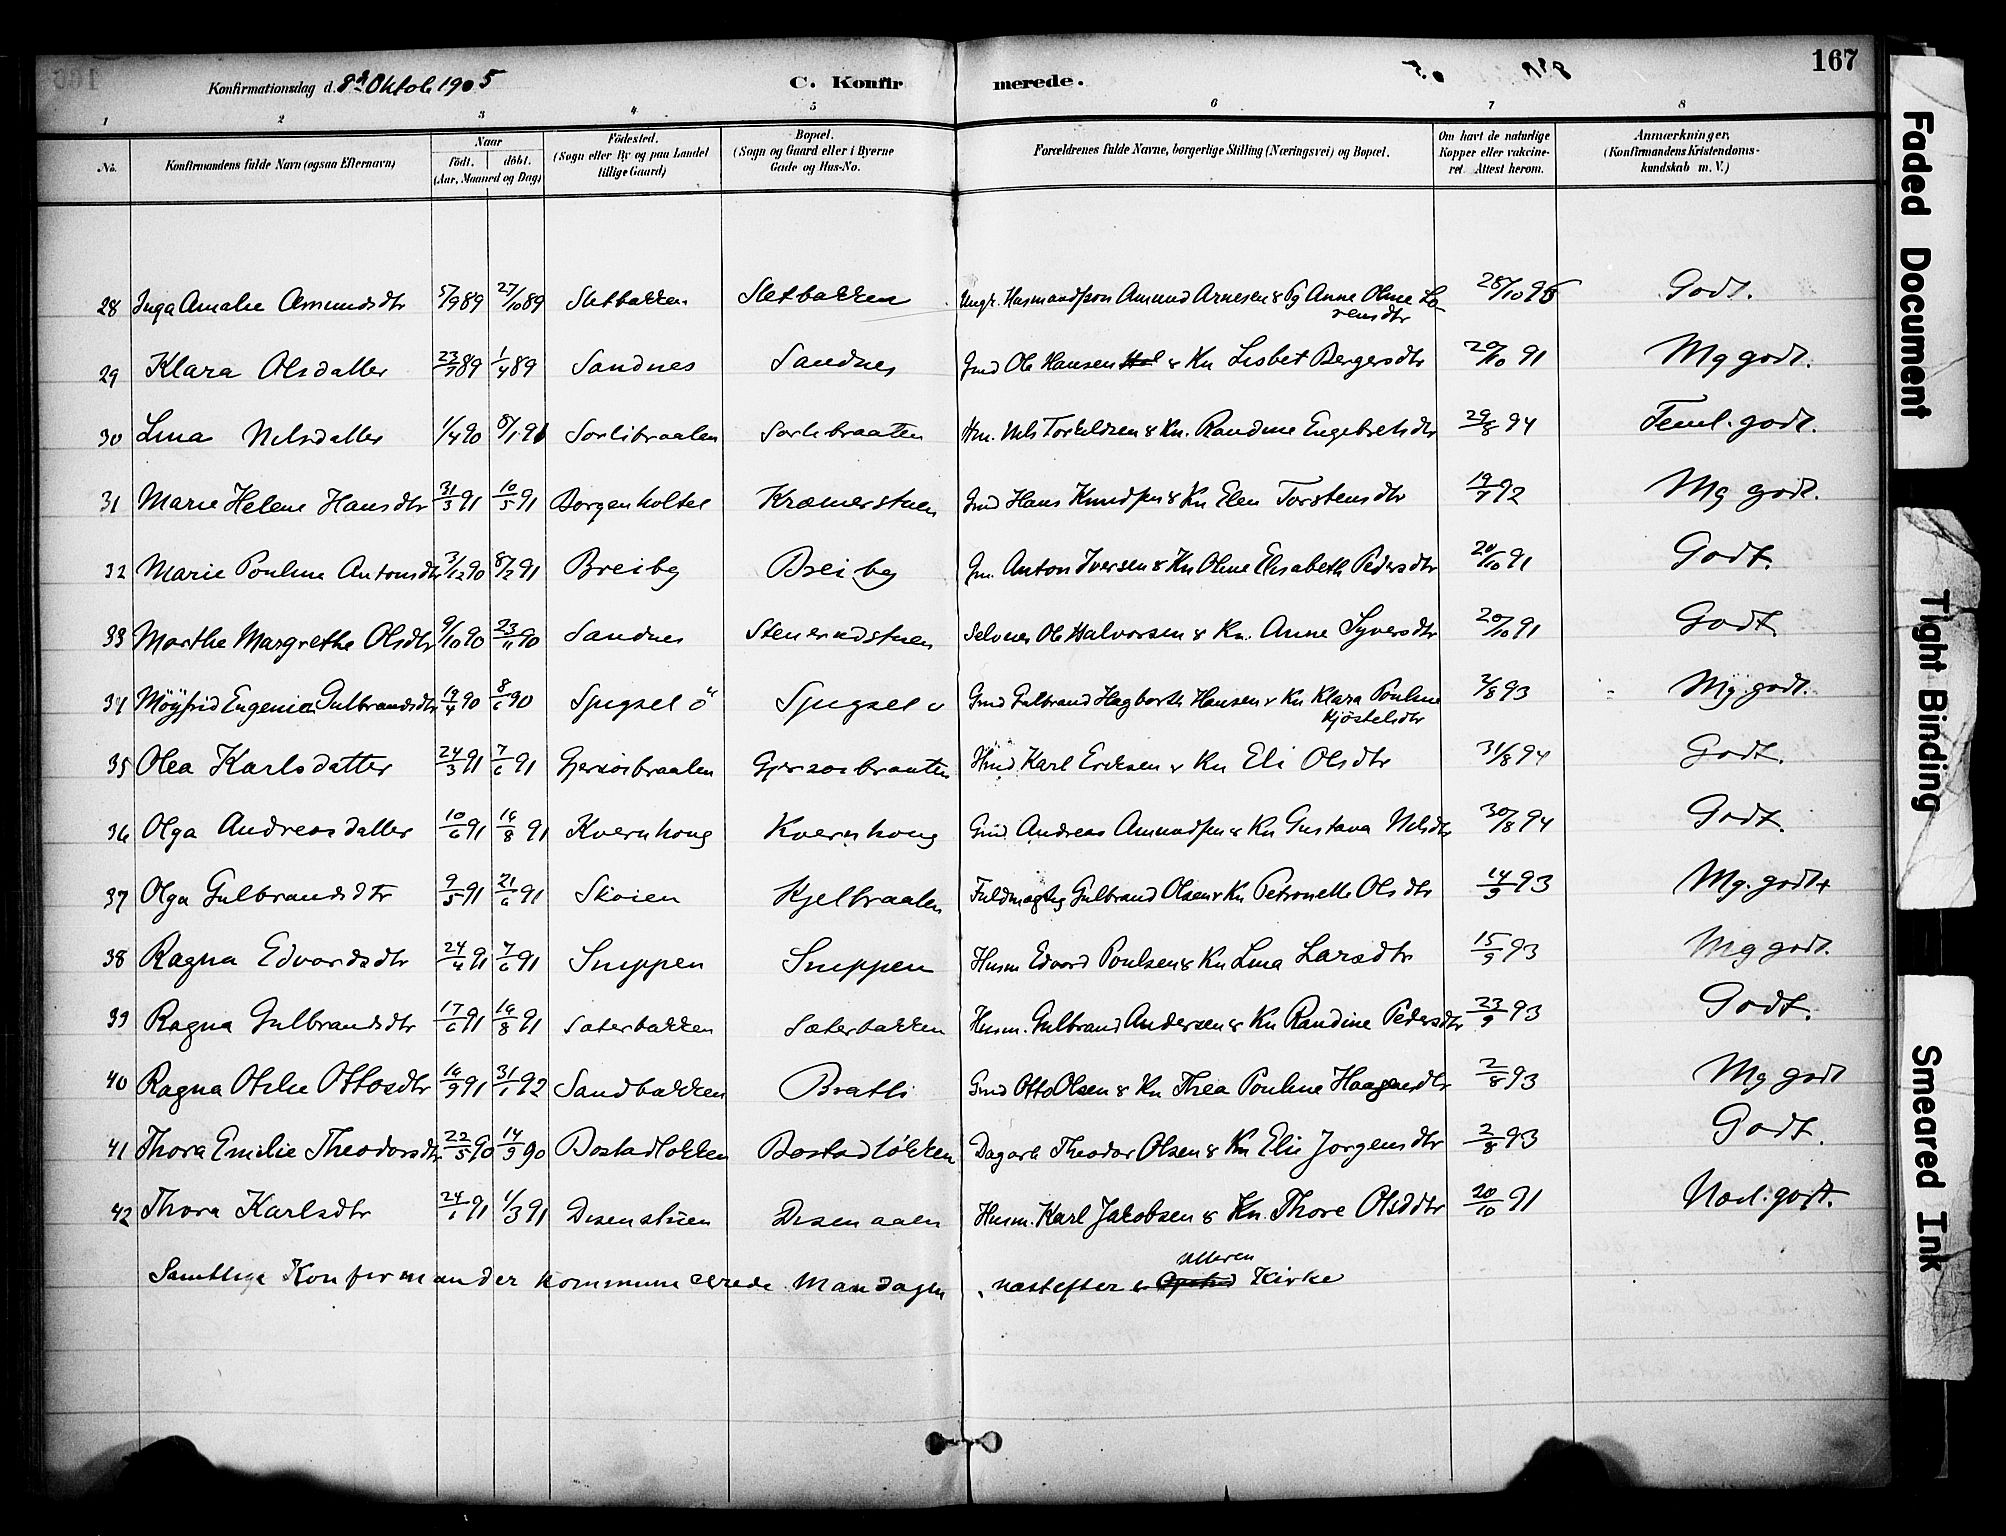 Konfirmationsdag d. 8de Oktob. 1905 C. Konfirmerede. 167
1 2 3 4 5 6 7 8
No. Konfirmandens fulde Navn (ogsaa Efternavn) Naar födt. döbt. (Aar, Maaned og Dag) Födested. (Sogn eller By og paa Landet tillige Gaard) Bopæl. (Sogn og Gaard eller i Byerne Gade og Hus-No. Forældrenes fulde Navne, borgerlige Stilling (Næringsvei) og Bopæl. Om havt de naturlige Kopper eller vakcineret. Attest herom. Anmærkninger, (Konfirmandens Kristendomskundskab m. V.)
28 Inga Amalie Amundsdtr 5/9 89 27/10 89 Sletbakken Sletbakken Ungk. Husmandssøn Amund Arnesen & Pg Anne Oline Larensdtr 28/10 95 Godt.
29 Klara Olsdatter 89 1/4 89 Sandnes Sandnes Gmd Ole Hansen & Kn Lisbet Bergersdtr 20/10 91 Mg godt.
30 Lina Nilsdatter 1/4 90 Sorlibraaten Sorlibraaten Hm. Nils Torkildsen & Kn. Randine Engebretsdtr 29/8 94 Teml. godt.
31 Marie Helene Hansdtr 31/3 91 10/5 91 Borgenholtet Kræmerstuen Gmd Hans Knudsen & Kn Elen Torstensdtr 19/7 92 Mg godt.
32 Marie Pouline Antonsdtr 3/12 90 8/2 91 Breiby Breiby Gm. Anton Iversen & Kn Oline Elisabeth Pedersdtr 20/10 91 Godt.
33 Marthe Margrethe Olsdtr 9/10 90 23/11 90 Sandnes Stenerudstuen Selveier Ole Halvorsen & Kn. Anne Syversdtr 20/10 91 Godt
34 Möyfrid Eugenia Gulbrandsdtr 19/4 90 8/6 90 Spigset ö Spigset Gmd Gulbrand Hagbarth Hansen & Kn Klara Pouline Kjöstelsdtr 2/8 93 Mg. godt.
35 Olea Karlsdatter 24/3 91 7/6 91 Gjersoebraaten Gjersoebraaten Hmd Karl Eriksen & Kn Eli Olsdtr 31/8 94 Godt.
36 Olga Andreasdatter 10/6 91 16/8 91 Kvernhoug Kvernhoug Gmd Andreas Amundsen & Kn Gustava Nilsdtr 30/8 94 Godt.
37 Olga Gulbrandsdtr 9/5 91 21/6 91 Skoien Kjelbraaten Fuldmægtig Gulbrand Olsen & Kn Petronelle Olsdtr 14/9 93 Mg. godt+
38 Ragna Edvardsdtr 24/4 91 7/6 91 Snippen Snippen Husm Edvard Poulsen & Kn Lina Larsdtr 15/9 93 Mg godt.
39 Ragna Gulbrandsdtr 17/6 91 16/8 91 Sæterbakken Sæterbakken Husm. Gulbrand Andersen & Kn Randine Pedersdtr 23/9 93 Godt.
40 Ragna Otilie Ottosdtr 16/9 91 31/1 92 Sandbakken Bratli Gmd Otto Olsen & Kn Thea Pouline Haagensdtr 2/8 93 Mg godt
41 Thora Emilie Theodorsdtr 22/5 90 14/9 90 Bostadløkken Bostadløkken Dagarb Theodor Olsen & Kn Elie Jorgensdtr 2/8 93 Godt.
42 Thora Karlsdtr 24/1 91 1/3 91 Disenstuen Disenaaen Husm. Karl Jakobsen & Kn. Thore Olsddtr 20/10 91 Nocl. godt.
Samtlige Konfirmander kommunicerede Mandagen næstefter Kirke
Faded Document
Tight Binding
Smeared Ink